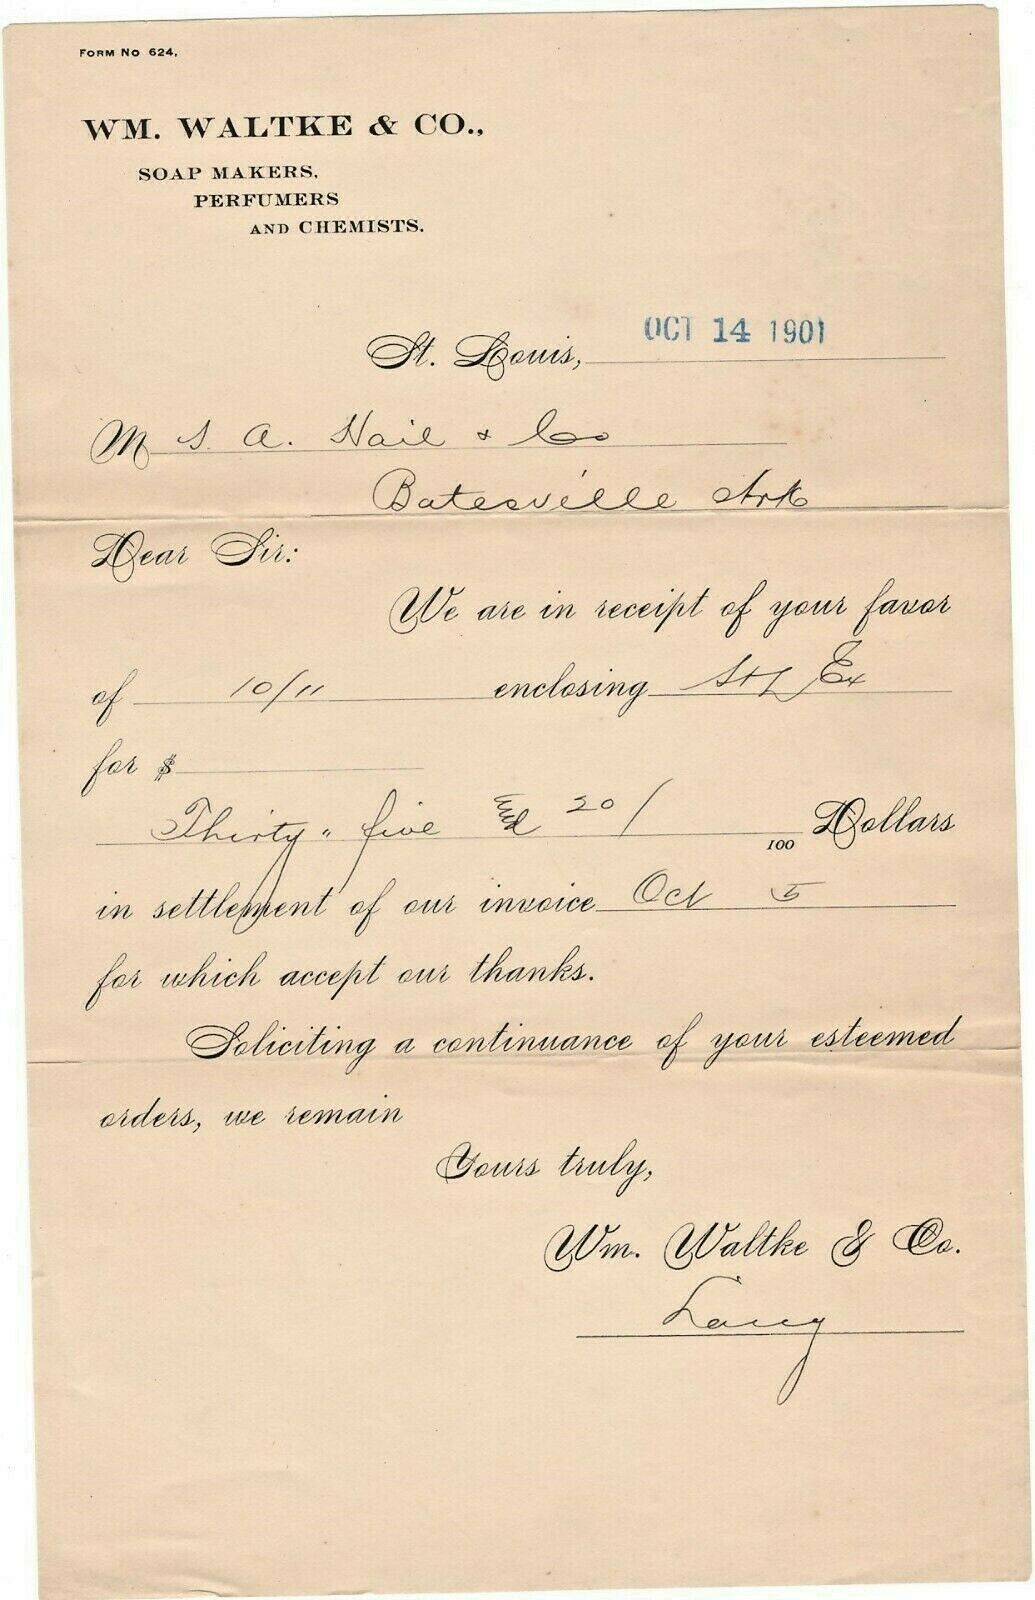 FORM NO 624.
WM. WALTKE & CO.,
SOAP MAKERS,
PERFUMERS
AND CHEMISTS.
St. Louis, OCT 14 1901
M S. A. Hail & Co
Batesville Ark
Dear Sir:
We are in receipt of your favor
of 10/11 enclosing StL Ex
for $
Thirty " five 20/
100 Dollars
in settlement of our invoice Oct 5
for which accept our thanks.
Soliciting a continuance of your esteemed
orders, we remain
Yours truly,
Wm. Waltke & Co.